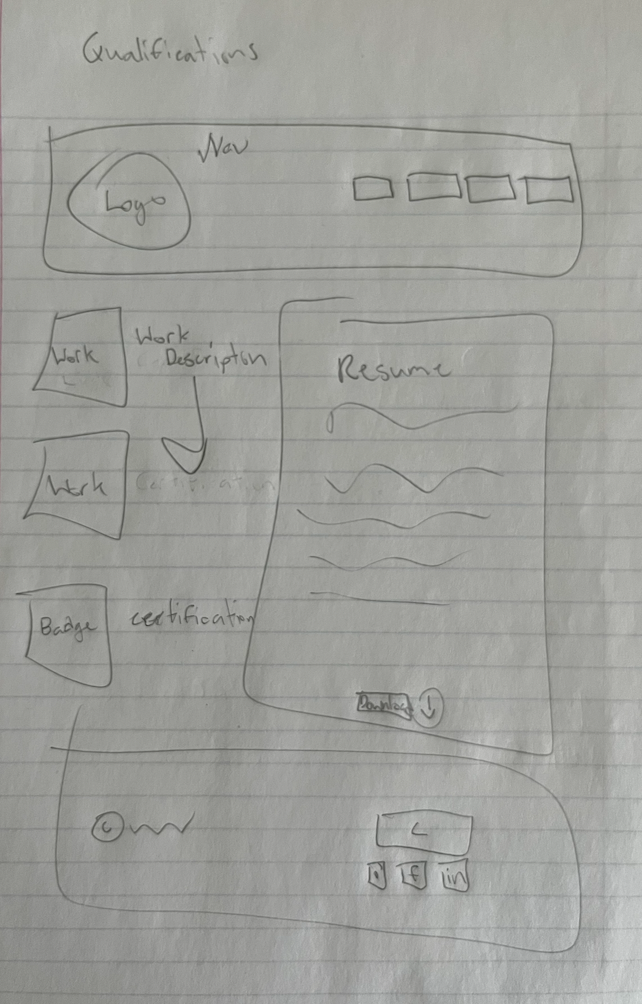 Qualifications
Nav
Logo
Work
Work
Description
Resume
Work
Certification
Badge
certification
Download
©
C
f
in